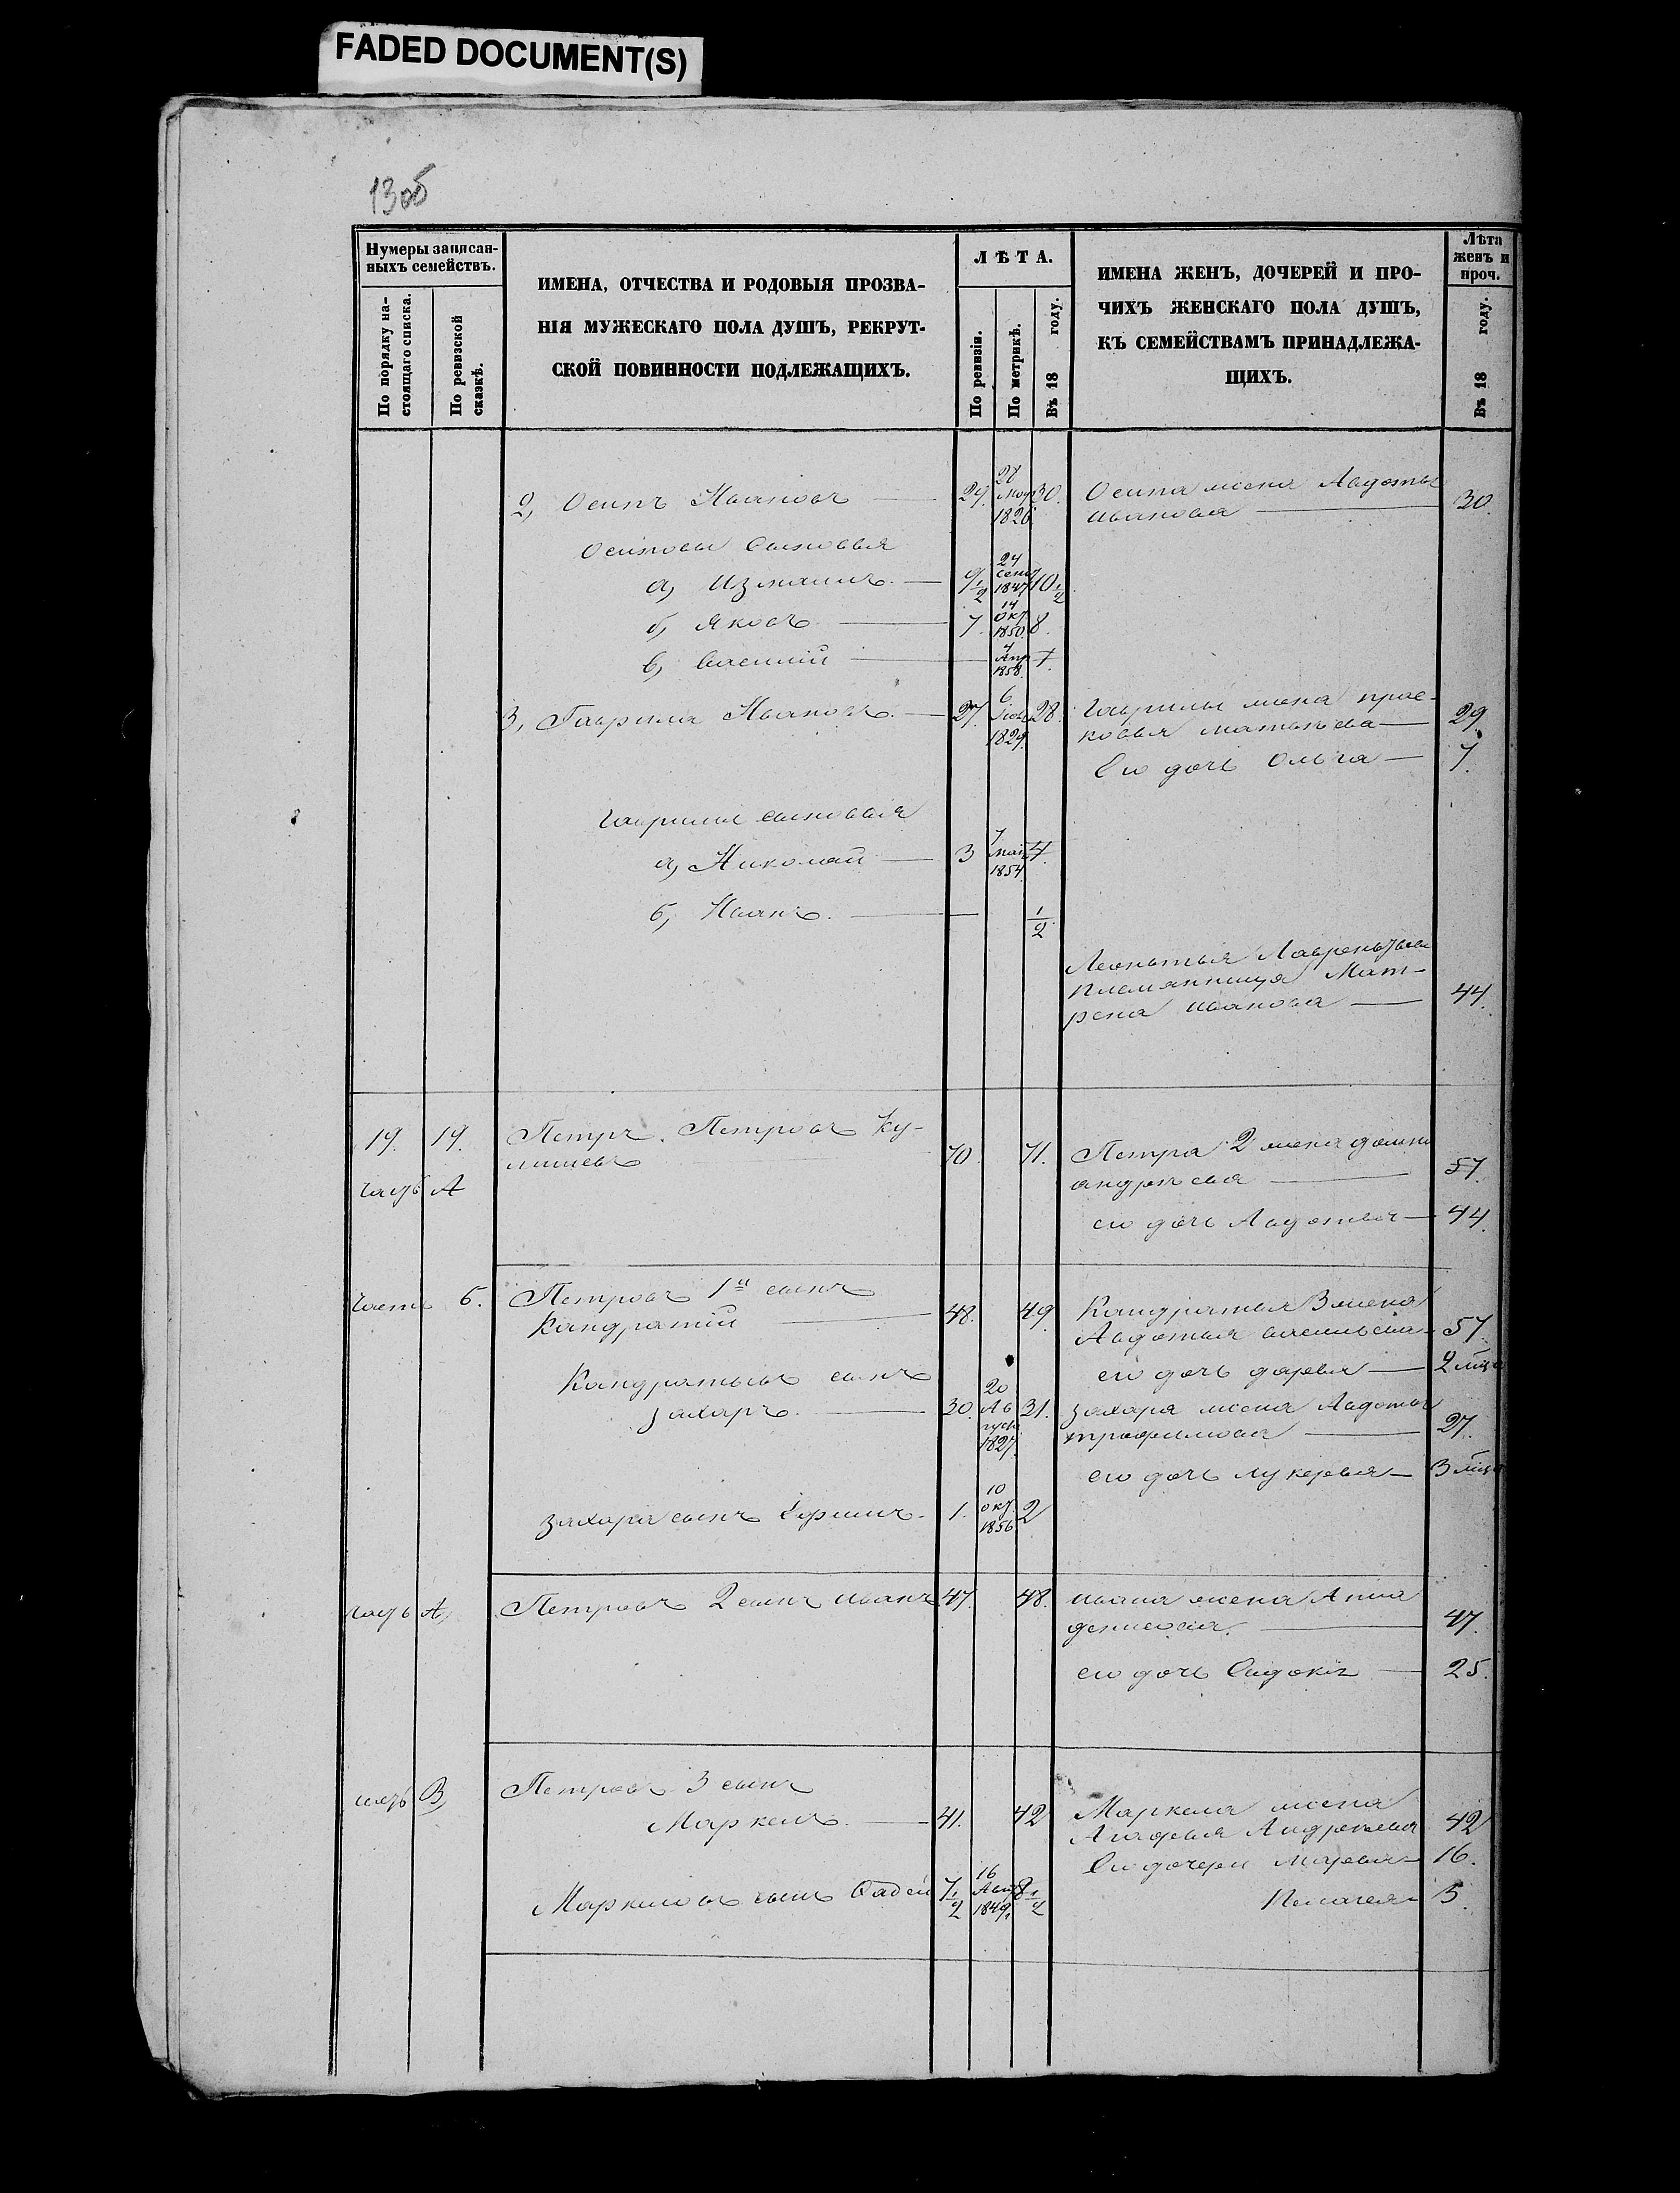 FADED DOCUMENT(S)
13об
Нумеры записан-
ныхъ семействъ.
По порядку на-
стоящаго списка.
По ревизской
сказкѣ.
ИМЕНА, ОТЧЕСТВА И РОДОВЫЯ ПРОЗВА-
НІЯ МУЖЕСКАГО ПОЛА ДУШЪ, РЕКРУТ-
СКОЙ ПОВИННОСТИ ПОДЛЕЖАЩИХЪ.
ЛѢТА.
По ревизіи.
По метрикѣ.
Въ 18 году.
ИМЕНА ЖЕНЪ, ДОЧЕРЕЙ И ПРО-
ЧИХЪ ЖЕНСКАГО ПОЛА ДУШЪ,
КЪ СЕМЕЙСТВАМЪ ПРИНАДЛЕЖА-
ЩИХЪ.
Лѣта
женъ и
проч.
Въ 18 году.
2, Осипъ Ивановъ 29. 30.
1826
Осипа жена Авдотья
Иванова 30.
Осиповы сыновья
а, Измаилъ 9 1/2 24 Сент 1847 10 1/2
б, Яковъ 7. 14 Окт 1850. 8.
в, Василий Апр 1858.
3, Гаврила Ивановъ 27. 6 1829. 28.
Гаврилы жена Прас-
ковья Матвеева 29.
Его дочь Ольга 7.
Гаврилы сыновья
а, Николай 3 7 Мая 1854 4.
б, Иванъ. 1/2
Леонтья Лаврентьева
племянница Мат-
рена Иванова 44.
19. 19. Петръ Петровъ Ку-
70. 71.
часть А
Петра 2 жена Домна
Андреева 57.
его дочь Авдотья 44.
Часть б. Петровъ 1й сынъ
Кандратий 48. 49
Кандратья 3 жена
Авдотья Васильева 57.
его дочь Дарья 2 мца
Кандратьевъ сынъ
Захаръ. 30. 20 Августа 1827. 31.
Захара жена Авдотья
Трофимова 27.
его дочь Лукерья 3 мца
Захара сынъ Ефимъ. 1. 10 окт. 1856 2
часть А, Петровъ 2 сынъ Иванъ 47. 48.
Ивана жена Анна
Денисова. 47.
его дочь Евдокия 25.
часть В, Петровъ 3 сынъ
Маркелъ. 41. 42
Маркела жена
Агафья Андреева 42
Его дочери Марья 16.
Маркеловъ сынъ Фадей 7 1/2 16 Авг 1849. 8 1/2
Пелагея 3.